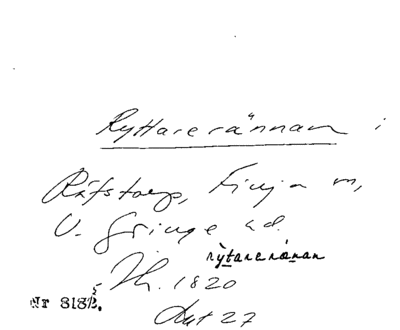 Ryttarerännan i
Röfstorp, Finja sn,
V. Göinge hd.
rỳtarerǻnan
Th. 1820
Nr 8182.
Aut 27